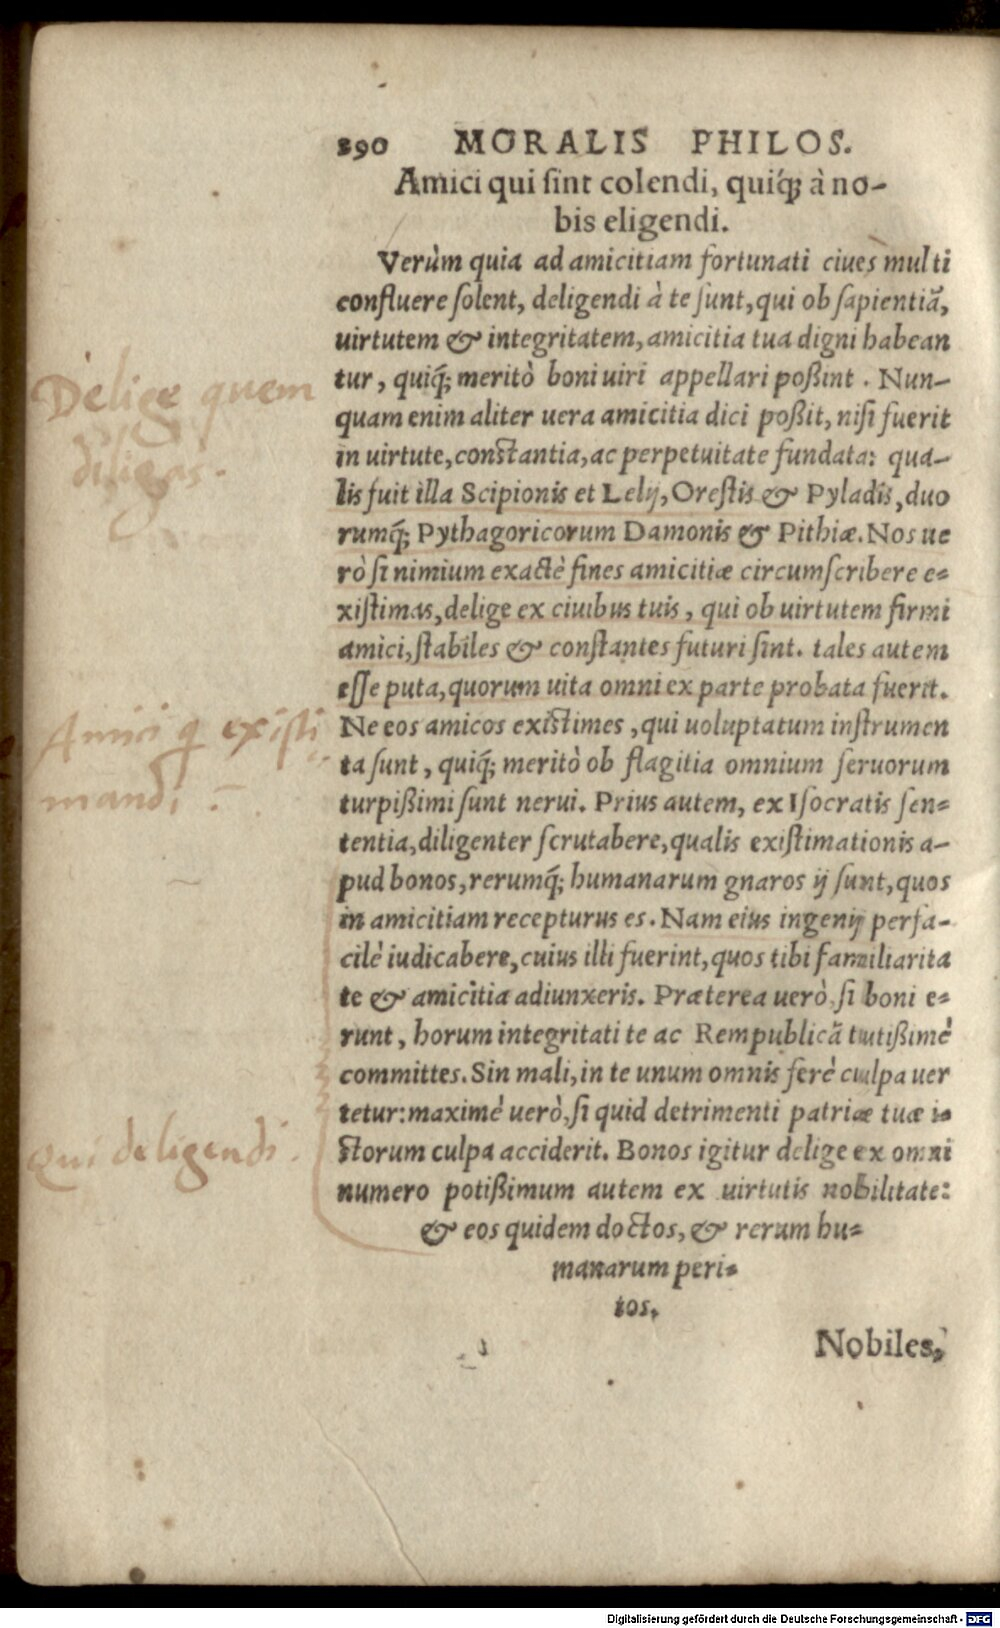 290 MORALIS PHILOS.
Amici qui ſint colendi, quiq́; à no-
bis eligendi.
Verùm quia ad amicitiam fortunati ciues multi
confluere ſolent, deligendi à te ſunt, qui ob ſapientiã,
uirtutem & integritatem, amicitia tua digni habean
tur, quiq́; meritò boni uiri appellari poßint. Nun-
quam enim aliter uera amicitia dici poßit, niſi fuerit
in uirtute, conſtantia, ac perpetuitate fundata: qua-
lis fuit illa Scipionis et Lelij, Oreſtis & Pyladis, duo
rumq́; Pythagoricorum Damonis & Pithiæ. Nos ue
rò ſi nimium exactè fines amicitiæ circumſcribere e=
xiſtimas, delige ex ciuibus tuis, qui ob uirtutem firmi
amici, ſtabiles & conſtantes futuri ſint. tales autem
eſſe puta, quorum uita omni ex parte probata fuerit.
Ne eos amicos exiſtimes, qui uoluptatum inſtrumen
ta ſunt, quiq́; meritò ob flagitia omnium ſeruorum
turpißimi ſunt nerui. Prius autem, ex Iſocratis ſen=
tentia, diligenter ſcrutabere, qualis exiſtimationis a-
pud bonos, rerumq́; humanarum gnaros ij ſunt, quos
in amicitiam recepturus es. Nam eius ingenij perfa-
cilè iudicabere, cuius illi fuerint, quos tibi familiarita
te & amicitia adiunxeris. Præterea uerò, ſi boni e=
runt, horum integritati te ac Rempublicã tutißimè
committes. Sin mali, in te unum omnis ferè culpa uer
tetur: maximè uerò, ſi quid detrimenti patriæ tuæ i=
ſtorum culpa acciderit. Bonos igitur delige ex omni
numero potißimum autem ex uirtutis nobilitate:
& eos quidem doctos, & rerum hu=
manarum peri=
tos.
Nobiles,
Delige quem
diligas.
Amici q existi
mandi
Qui deligendi.
Digitalisierung gefördert durch die Deutsche Forschungsgemeinschaft - DFG